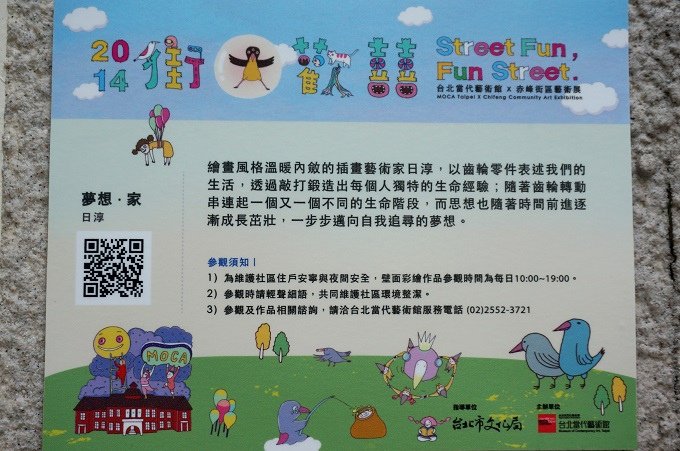 2014 街大歡囍
Street Fun,
Fun Street.
台北當代藝術館 x 赤峰街區藝術展
MOCA Taipei X Chifeng Community Art Exhibition
夢想．家
日淳
繪畫風格溫暖內斂的插畫藝術家日淳，以齒輪零件表述我們的
生活，透過敲打鍛造出每個人獨特的生命經驗；隨著齒輪轉動
串連起一個又一個不同的生命階段，而思想也隨著時間前進逐
漸成長茁壯，一步步邁向自我追尋的夢想。
參觀須知！
1）為維護社區住戶安寧與夜間安全，壁面彩繪作品參觀時間為每日10:00~19:00。
2）參觀時請輕聲細語，共同維護社區環境整潔。
3）參觀及作品相關諮詢，請洽台北當代藝術館服務電話 (02)2552-3721
MOCA
指導單位
台北市文化局
主辦單位
台北當代藝術館
Museum of Contemporary Art, Taipei